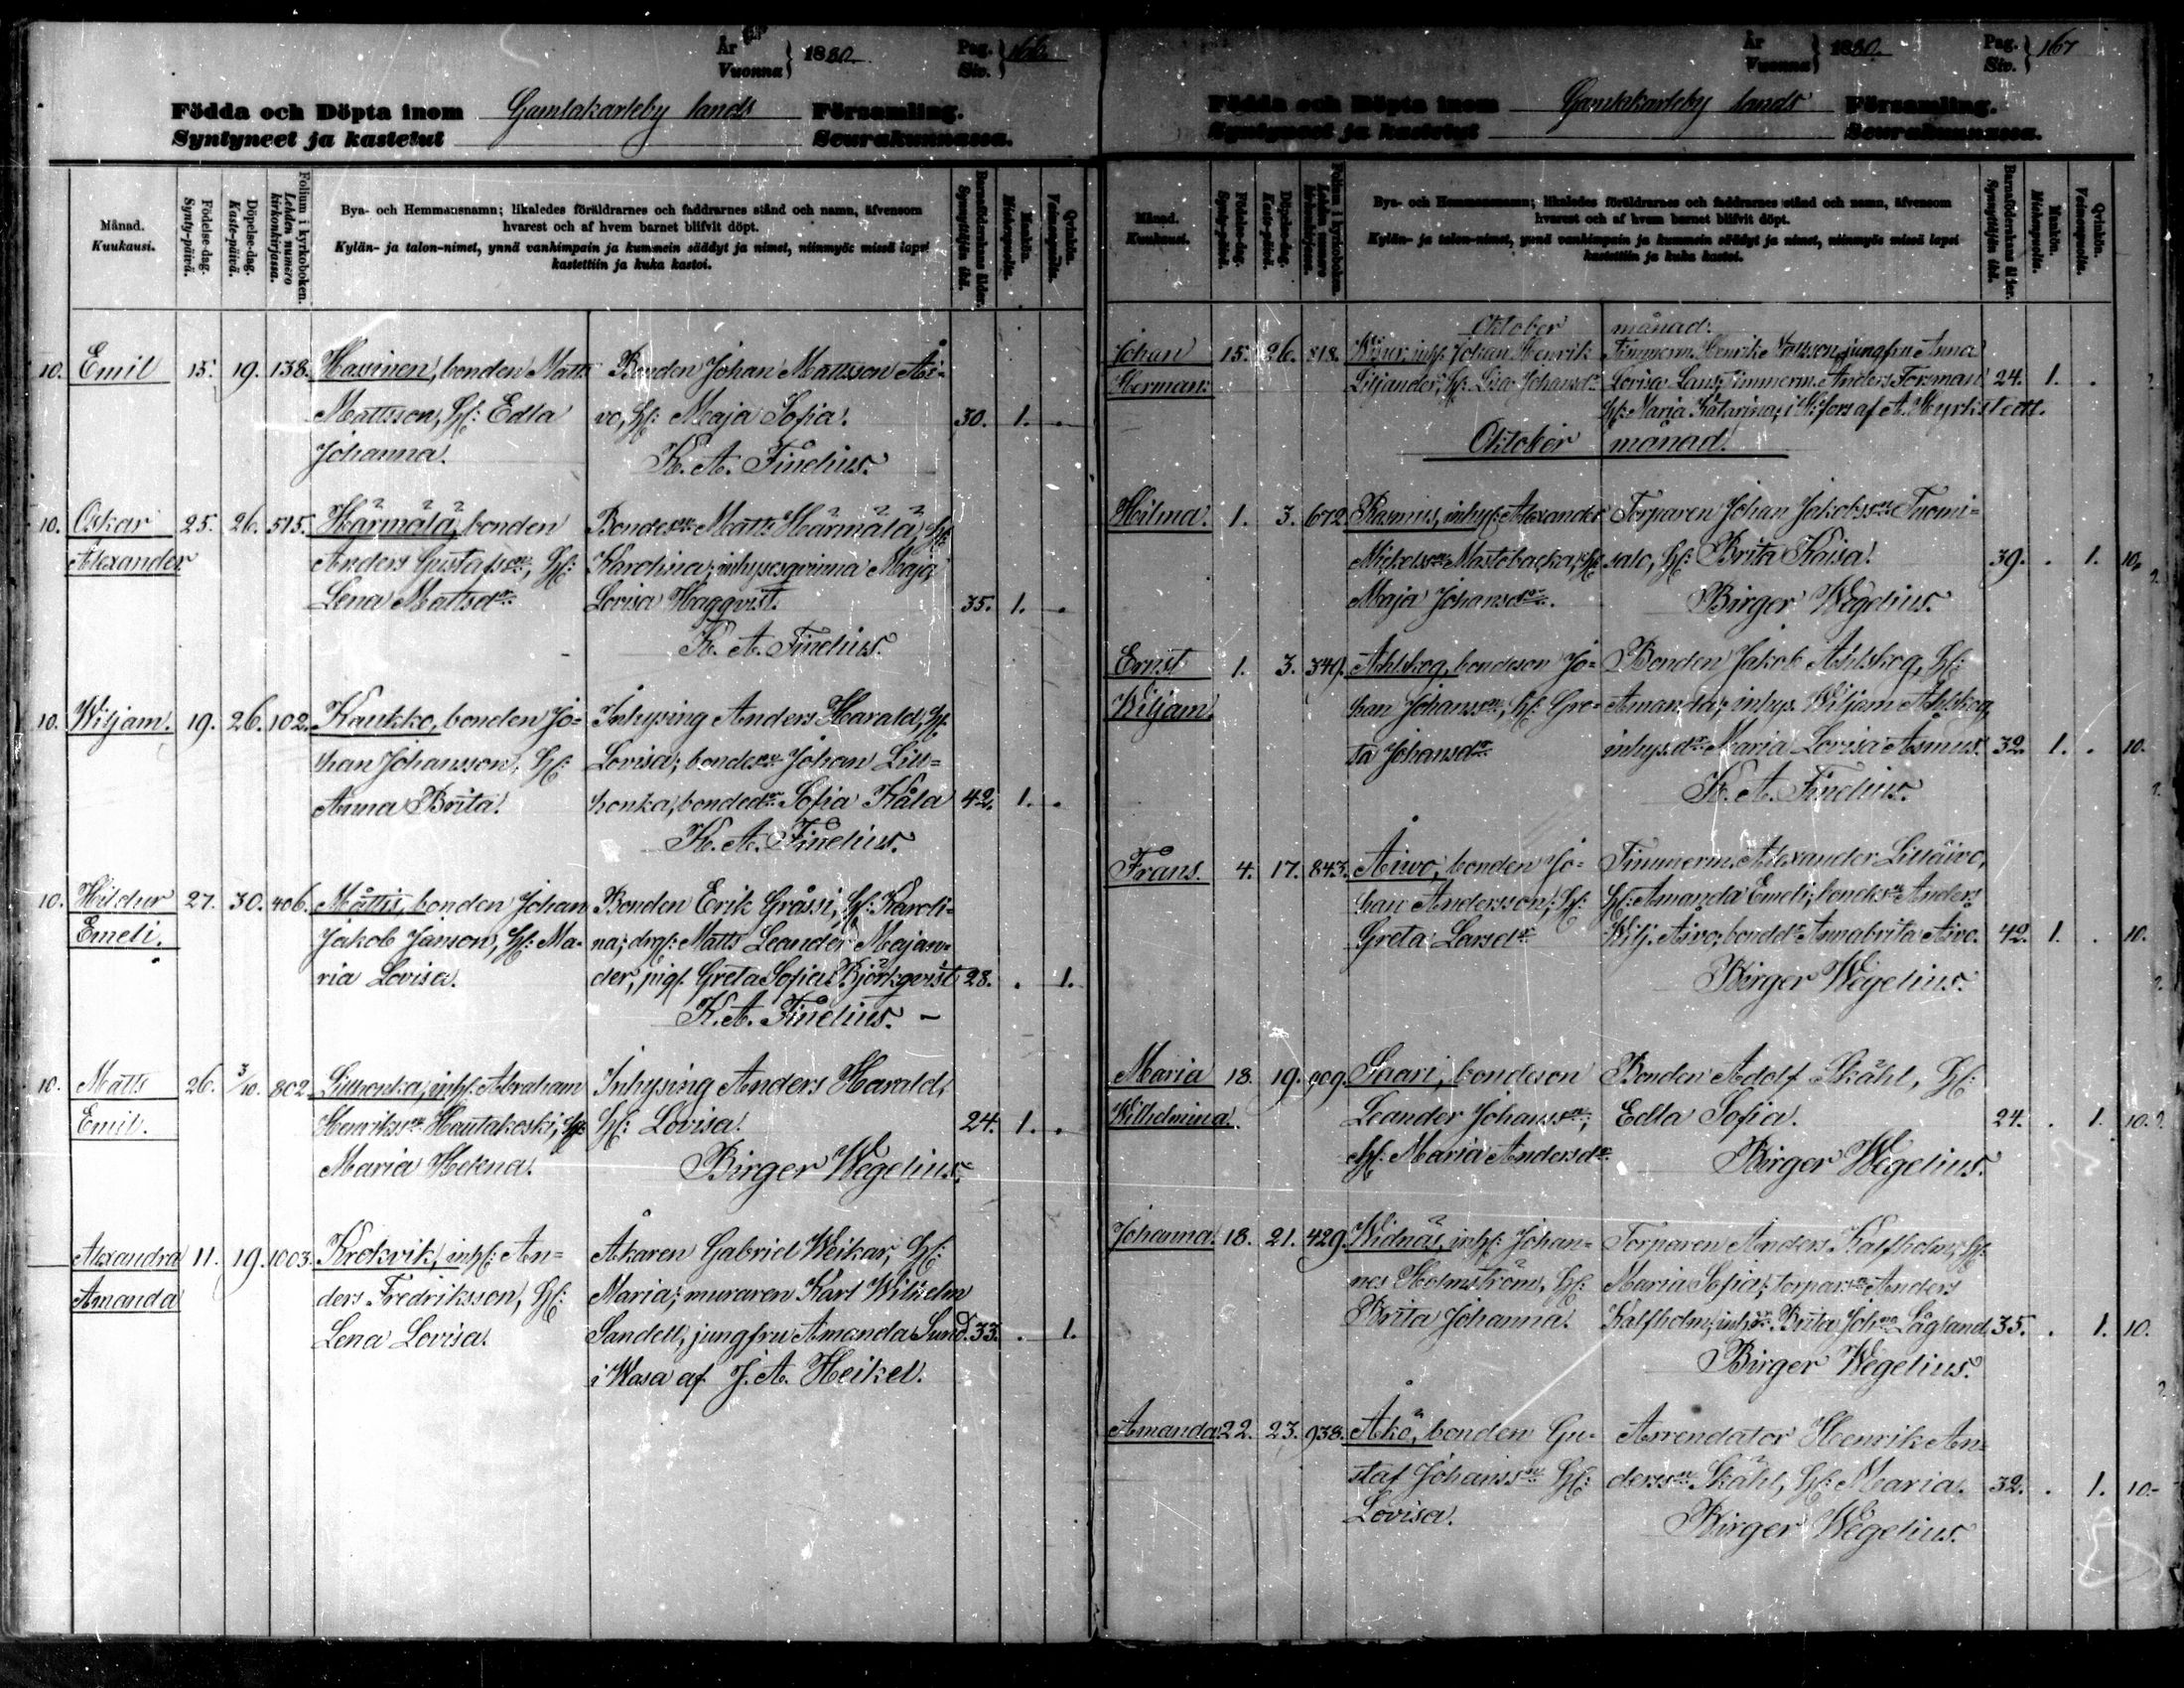 År
Vuonna
1880.
Pag.
Siv.
166.
Födda och Döpta inom Gamlakarleby lands Församling.
Syntyneet ja kastetut Seurakunnassa.
Månad.
Kuukausi.
Födelse-dag.
Synty-päivä.
Döpelse-dag.
Kaste-päivä.
Folium i kyrkoboken.
Lehden numero kirkonkirjassa.
Bya- och Hemmansnamn; likaledes föräldrarnes och faddrarnes stånd och namn, äfvensom
hvarest och af hvem barnet blifvit döpt.
Kylän- ja talon-nimet, ynnä vanhimpain ja kummein säädyt ja nimet, niinmyös missä lapsi
kastettiin ja kuka kastoi.
Barnaföderskans ålder.
Synnyttäjän ikä.
Mankön.
Miehenpuolia.
Qvinkön.
Vaimonpuolia.
10. Emil 15. 19. 138. Hassinen, bonden Matts Bonden Johan Mattsson Åi-
Mattsson, Hf: Edla vo, Hf: Maja Sofia. 30. 1. .
Johanna. K. A. Finelius.
10. Oskar 25. 26. 515. Härmälä, bonden Bondeson Matts Härmälä, Hf:
Alexander Anders Gustafson, Hf: Karolina; inhysesqvinna Maja
Lena Mattsdr. Lovisa Haggqvist. 35. 1. .
K. A. Finelius.
10. Wiljam. 19. 26. 102. Kaukko, bonden Jo- Inhysing Anders Harald, Hf:
han Johansson, Hf: Lovisa; bondeson Johan Liu-
Anna Brita. honka, bondedr. Sofia Kåla 42. 1. .
K. A. Finelius.
10. Hildur 27. 30. 406. Måttis, bonden Johan Bonden Erik Gråssi, Hf: Karoli-
Emeli. Jakob Janson, Hf: Ma- na; drg: Matts Leander Majan-
ria Lovisa. der, pig. Greta Sofia Björkqvist 28. . 1.
K. A. Finelius. –
10. Matts 26. 3/10. 802. Liuhonka, inhs: Abraham Inhysing Anders Harald,
Emil. Henrikson Hautakoski, Hf: Hf: Lovisa. 24. 1. .
Maria Helena. Birger Wegelius.
Alexandra 11. 19. 1003. Krokvik, inhs: An- Åkaren Gabriel Weikar, Hf:
Amanda ders Fredriksson, Hf: Maria; muraren Karl Wilhelm
Lena Lovisa. Sandell, jungfru Amanda Sund. 33. . 1.
i Wasa af J. A. Heikel.
År
Vuonna
1880.
Pag.
Siv.
167
Födda och Döpta inom Gamlakarleby lands Församling.
Syntyneet ja kastetut Seurakunnassa.
Månad.
Kuukausi.
Födelse-dag.
Synty-päivä.
Döpelse-dag.
Kaste-päivä.
Folium i kyrkoboken.
Lehden numero kirkonkirjassa.
Bya- och Hemmansnamn; likaledes föräldrarnes och faddrarnes stånd och namn, äfvensom
hvarest och af hvem barnet blifvit döpt.
Kylän- ja talon-nimet, ynnä vanhimpain ja kummein säädyt ja nimet, niinmyös missä lapsi
kastettiin ja kuka kastoi.
Barnaföderskans ålder.
Synnyttäjän ikä.
Mankön.
Miehenpuolia.
Qvinkön.
Vaimonpuolia.
Oktober månad.
Johan 15. 26. 818. inhs. Johan Henrik Timmerm. Henrik jungfru Anna
Herman. Liljander, Hf: Lisa Johansdr. Lovisa Timmerm. Anders Forsman 24. 1. .
Hf: Maria Katarina, i af A. Hyrkstedt.
Oktober månad.
Hilma. 1. 3. 672. Rasmus, inhys: Alexander Torparen Johan Jakobsson Tuomi-
Mickelsson Mastobacka, Hf: salo, Hf: Brita Kaisa. 39. . 1. 10.
Maja Johansdr. Birger Wegelius.
Ernst 1. 3. 349. Ahlskog, bondeson Jo- Bonden Jakob Ahlskog, Hf:
Wiljam. han Johansson, Hf: Gre- Amanda; inhys. Wiljam Ahlskog,
ta Johansdr. inhys.dr. Maria Lovisa Asmus. 32. 1. . 10.
K. A. Finelius.
Frans. 4. 17. 843. Åiwo, bonden Jo- Timmerm. Alexander Lilläivo,
han Andersson, Hf: Hf: Amanda Emeli; bondson Anders
Greta Larsdr. Wilj. Åivo; bonddr. Annabrita Åivo. 42. 1. . 10.
Birger Wegelius.
Maria 18. 19. 909. Saari, bondeson Bonden Adolf Skåhl, Hf:
Wilhelmina. Leander Johansson, Edla Sofia. 24. . 1. 10.
Hf: Maria Andersdr. Birger Wegelius.
Johanna. 18. 21. 429. Widnäs, inhs: Johan- Torparen Anders Kalfholm, Hf:
nes Holmström, Hf: Maria Sofia; torparson Anders
Brita Johanna. Kalfholm, inhdr. Brita Joh:na Lågland, 35. . 1. 10.
Birger Wegelius.
Amanda 22. 23. 938. Åkö, bonden Gu- Arrendator Henrik An-
staf Johansson, Hf: dersson Skåhl, Hf: Maria. 32. . 1. 10.
Lovisa. Birger Wegelius.